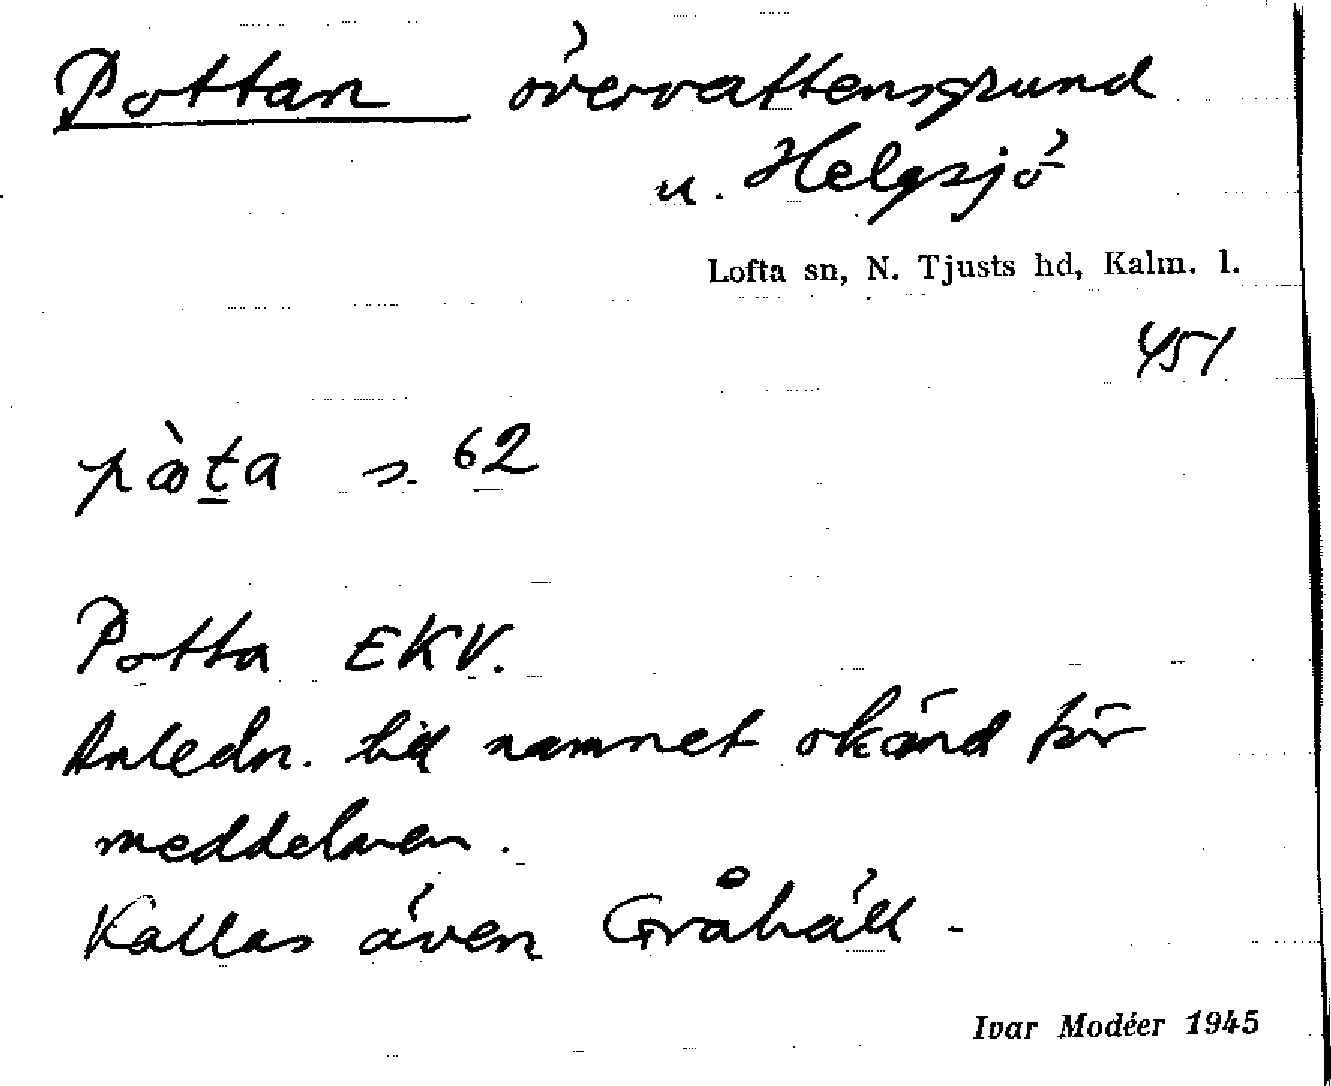 Pottan övervattensgrund
u. Helgsjö
Lofta sn, N. Tjusts hd, Kalm. l.
451
s. 62
Potta EKV.
Anledn. till namnet okänd för
meddelaren.
Kallas även Gråhäll.
Ivar Modéer 1945